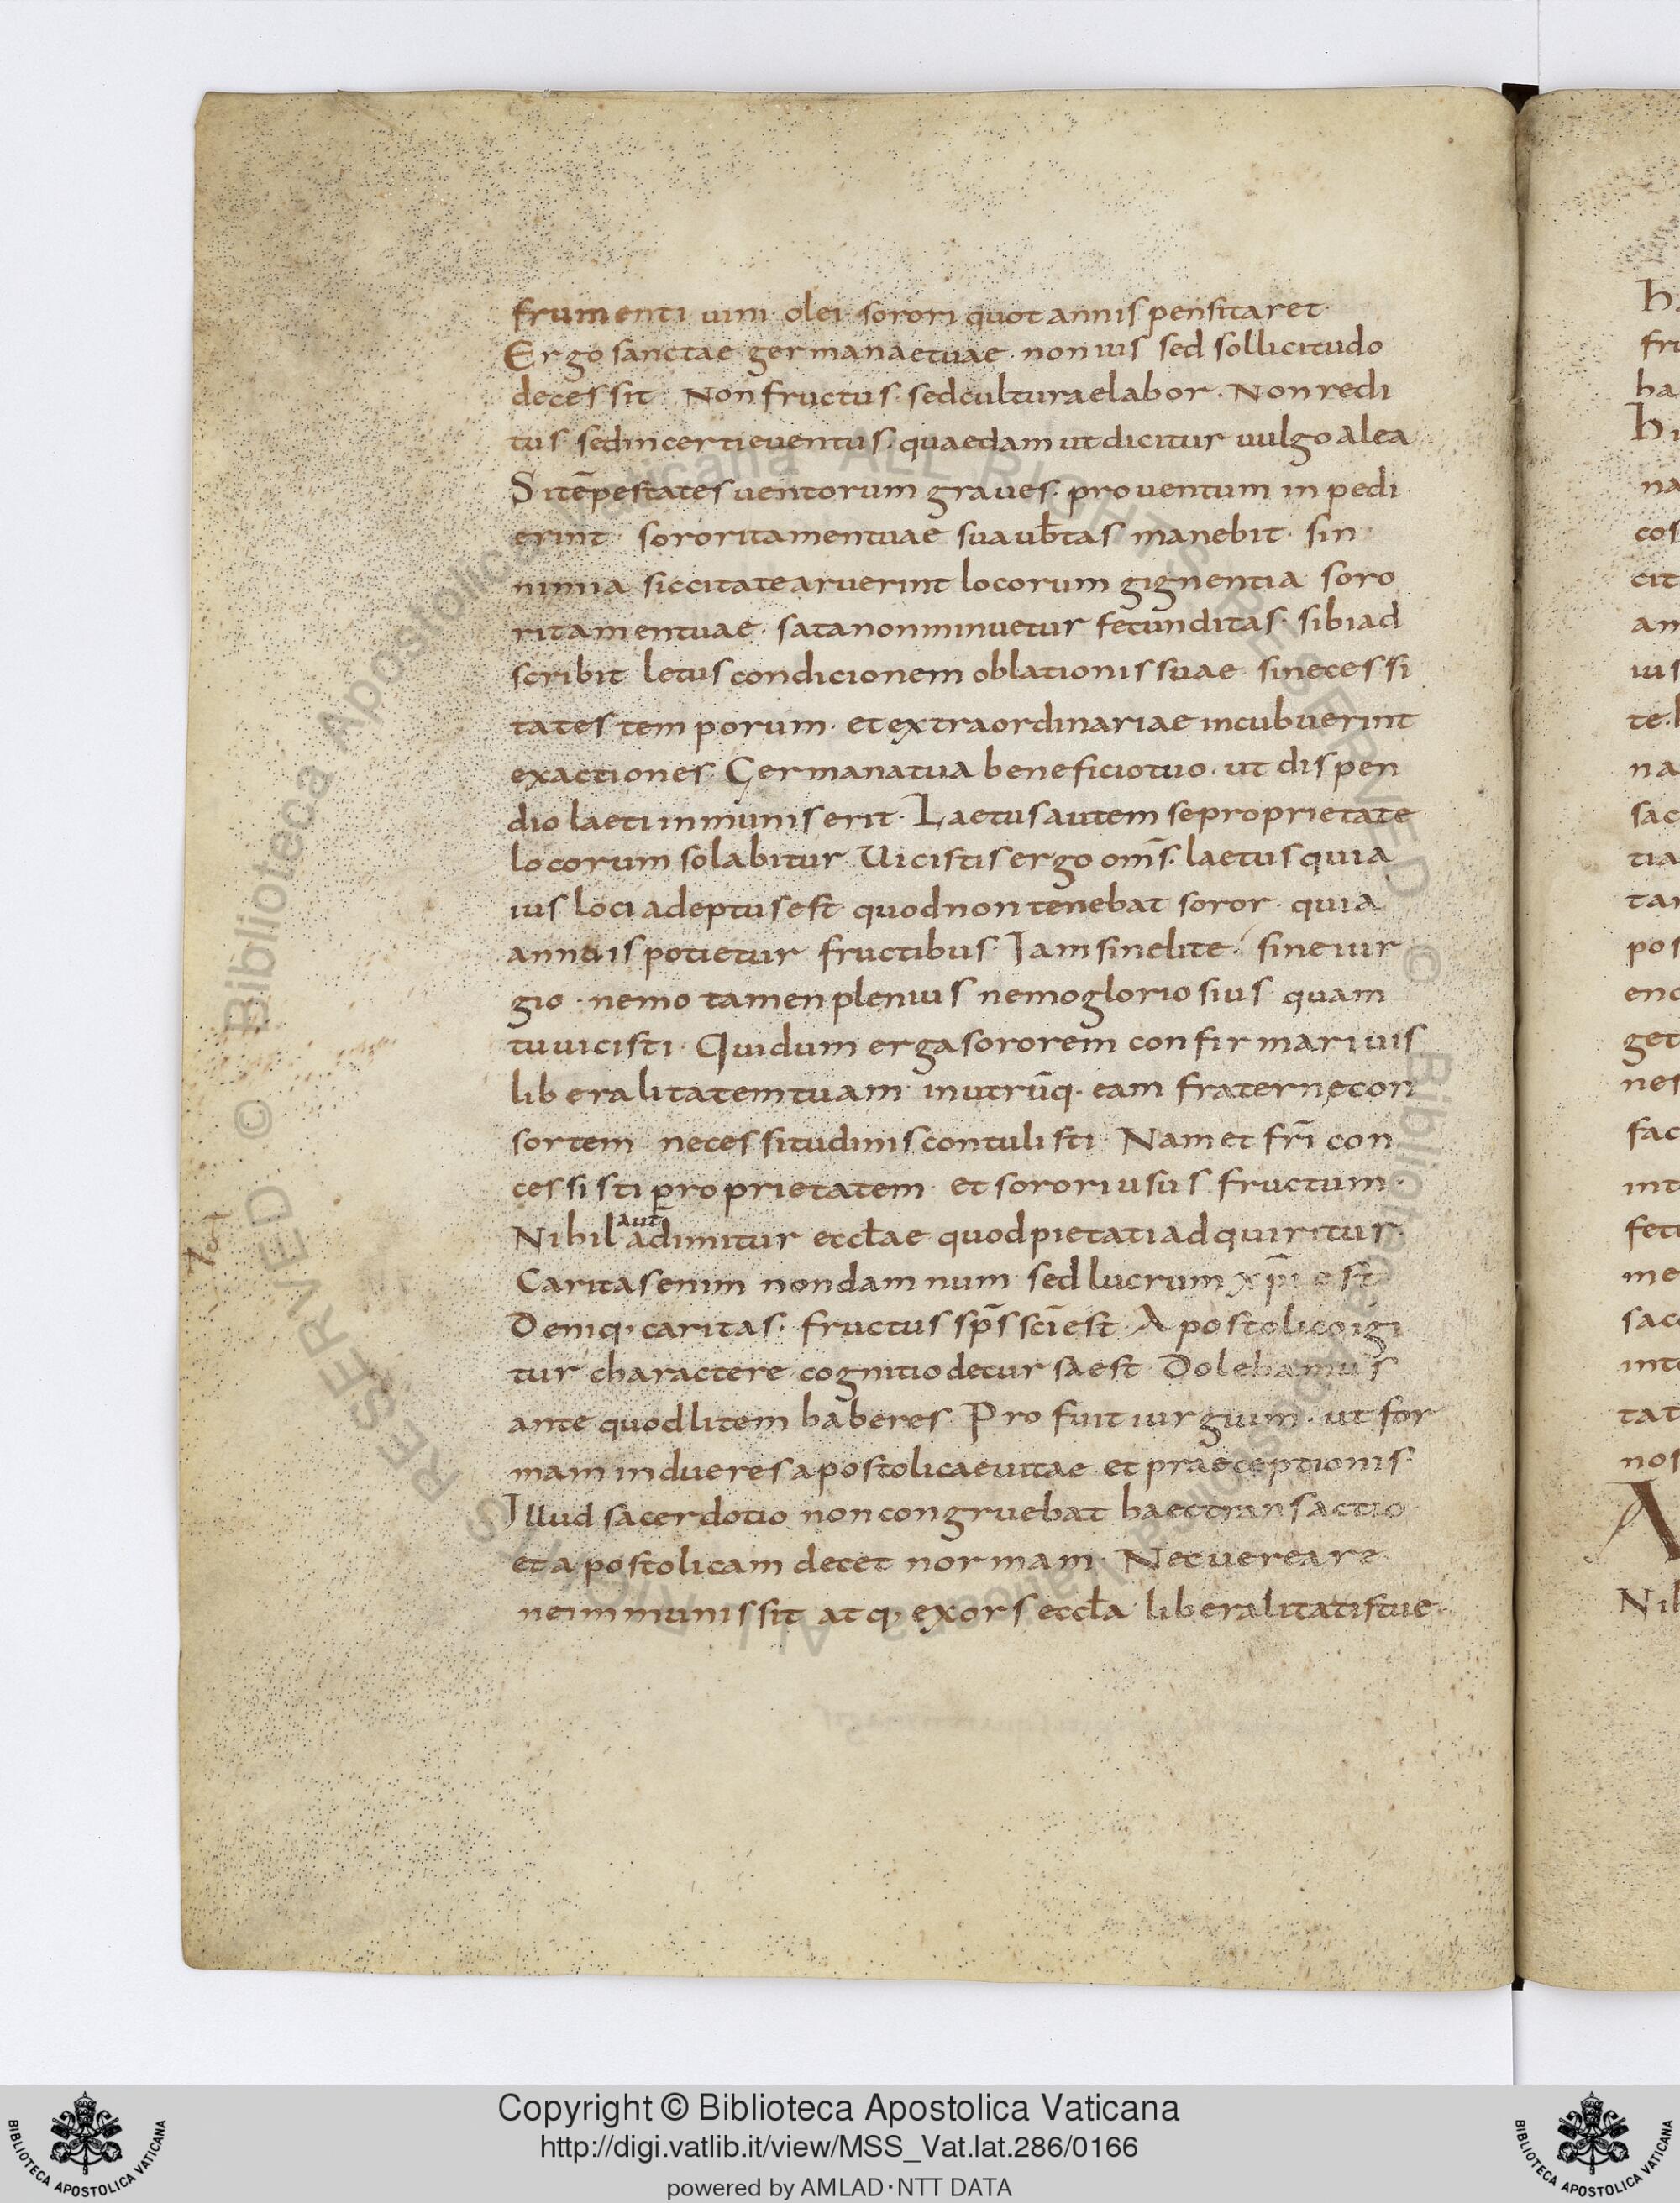 frumenti uini· olei· sorori quotannis pensitaret·
Ergo sanctae germanae tuae· non ius sed sollicitudo
decessit· Non fructus· sed culturae labor· Non redi
tus sed incerti euentus· quaedam ut dicitur uulgo alea
Si tēpestates uentorum graues· prouentum inpedi
erint· sorori tamen tuae sua ubtas manebit· sin
nimia siccitate aruerint locorum gignentia soro
ri tamen tuae· sata non minuetur fecunditas· sibi ad
scribit letus condicionem oblationis suae si necessi
tates temporum· et extraordinariae incubuerint
exactiones· Germana tua beneficio tuo· ut dispen
dio laeti inmunis erit· Laetus autem se proprietate
locorum solabitur Uicistis ergo om̄s· laetus quia
ius loci adeptus est quod non tenebat soror· quia
annuis potietur fructibus· Iam sine lite· sine iur
gio· nemo tamen plenius nemo gloriosius quam
tu uicisti· Qui dum erga sororem confirmari uis
liberalitatem tuam· in utrūq· eam fraternę con
sortem necessitudinis contulisti· Nam et fr̄i con
cessisti proprietatem· et sorori usus fructum·
aut
Nihil adimitur eccłae quod pietati adquiritur·
Caritas enim non damnum· sed lucrum xp̄i est
Deniq· caritas· fructus sp̄s sc̄i est· Apostolico igi
tur charactere cognitio decursa est· Dolebamus
ante quod litem haberes· Profuit iurgium· ut for
mam indueres apostolicae uitae et praeceptionis·
Illud sacerdotio non congruebat haec transactio
et apostolicam decet normam· Nec uereare
ne immunis sit atq· exors eccła liberalitatis tue·
Copyright © Biblioteca Apostolica Vaticana
http://digi.vatlib.it/view/MSS_Vat.lat.286/0166
powered by AMLAD·NTT DATA